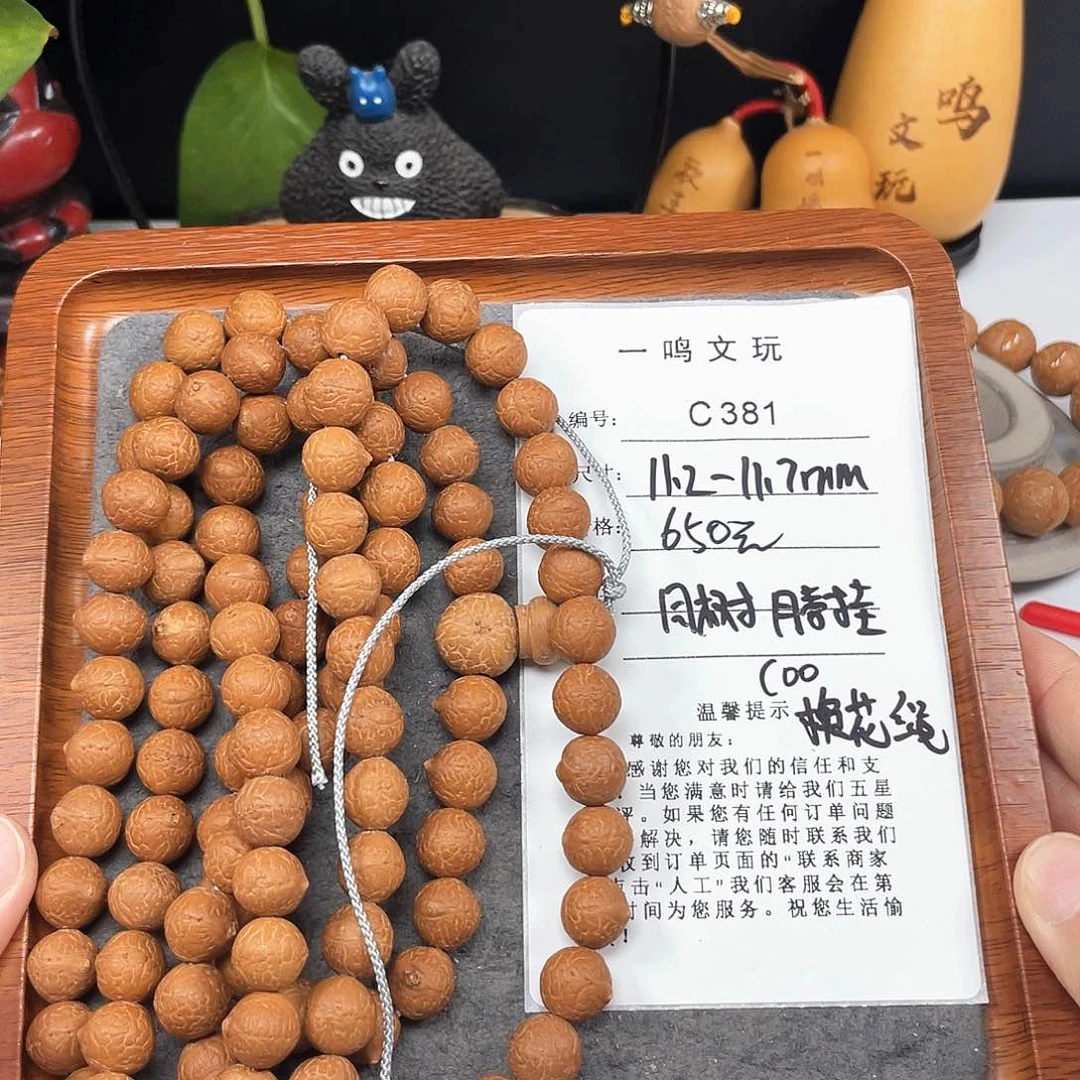 鸣
文
玩
一鸣文玩
编号: C381
尺寸: 11.2-11.7mm
格: 650元
同树脐挂
C00
温馨提示 梅花绳
尊敬的朋友:
感谢您对我们的信任和支
当您满意时请给我们五星
评。如果您有任何订单问题
解决,请您随时联系我们
收到订单页面的“联系商家
点击“人工”我们客服会在第
时间为您服务。祝您生活愉
!